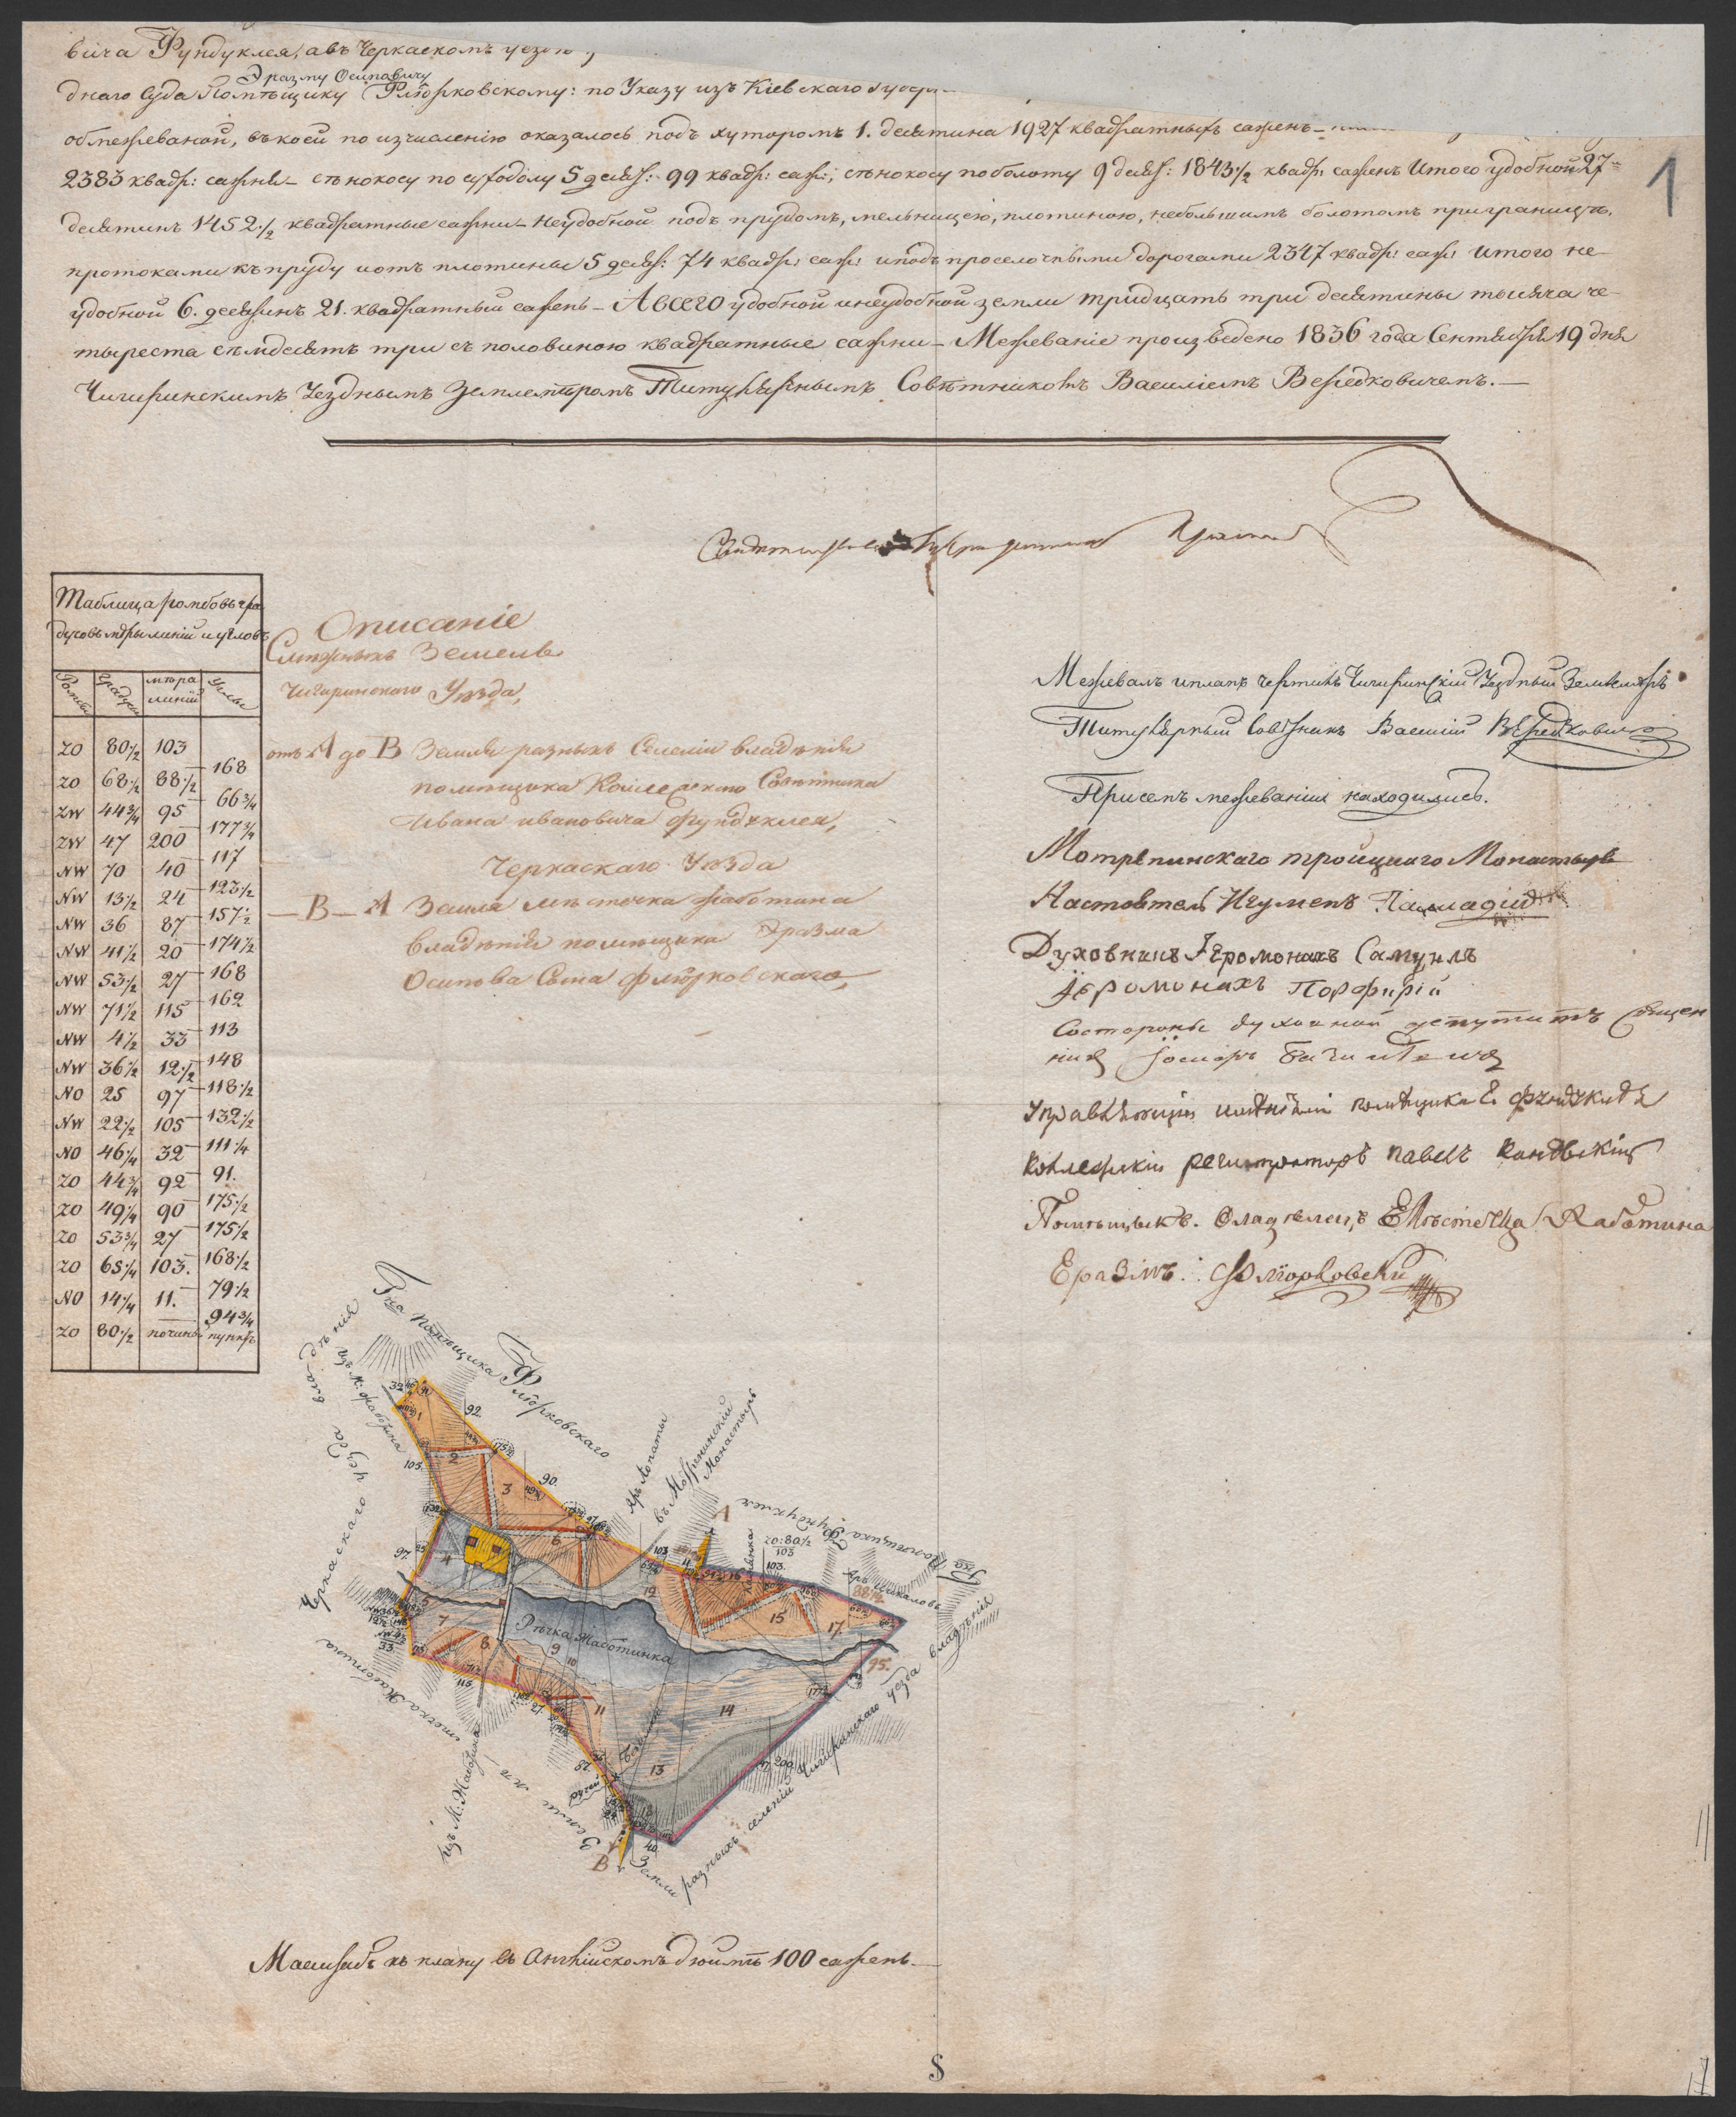 вича Фундуклея, а въ Черкаскомъ уездѣ
Эразму Осиповичу
днаго Суда Помѣщику Флiорковскому: по Указу изъ Кіевскаго
обмежеваной, въ коей по изчисленію оказалось подъ хуторомъ 1. десятина 1927 квадратныхъ сажень –
2383 квадр: сажня – сѣнокосу по суходолу 5 десят: 99 квадр: саж:, сѣнокосу по болоту 9 десят: 1843½ квадр: сажень Итого удобной 27
десятинъ 1452½ квадратные сажни – Неудобной подъ прудомъ, мельницею, плотиною, небольшимъ болотомъ при границѣ,
протоками къ пруду и отъ плотины 5 десят: 74 квадр: саж: и подъ проселочными дорогами 2347 квадр: саж: Итого не-
удобной 6. десятинъ 21. квадратный сажень – А всего удобной и неудобной земли тридцать три десятины тысяча че-
тыреста семдесятъ три съ половиною квадратные сажни – Межеваніе произведено 1836 года Сентября 19 дня
Чигиринскимъ Уезднымъ Землемѣромъ Титулярнымъ Совѣтникомъ Василіемъ Вередковичемъ. –
1
Таблица ромбовъ гра-
дусовъ мѣры линій и угловъ
Ромбы Градусы мѣра линій Углы
ZO 80½ 103
168
ZO 68½ 88½
66¾
ZW 44¾ 95
177¾
ZW 47 200
117
NW 70 40
123½
NW 13½ 24
157½
NW 36 87
174½
NW 41½ 20
168
NW 53½ 27
162
NW 71½ 115
113
NW 4½ 33
148
NW 36½ 12½
118½
NO 25 97
132½
NW 22½ 105
111¼
NO 46¼ 32
91.
ZO 44¾ 92
175½
ZO 49¼ 90
175½
ZO 53¾ 27
168½
ZO 65¼ 103.
79½
NO 14¼ 11.
94¾
ZO 80½ пунктъ
Описаніе
Смѣжныхъ Земель
Чигиринскаго Уѣзда,
отъ А до В Земля разныхъ Селеній владѣнія
помѣщика Колежскаго Совѣтника
Ивана Ивановича Фундуклея,
Черкаскаго Уѣзда
– В – А Земля мѣстечка Жаботина
владѣнія помѣщика Эразма
Осипова Сына Флiорковскаго,
Межевалъ и планъ чертилъ Чигиринскій Уездный Землемѣръ
Титулярный Совѣтникъ Василій Вередковичъ
При семъ межеваніи находились.
Мотренинскаго троицкаго Монастыря
Настоятель Игуменъ Палладій
Духовникъ Іеромонахъ Самуилъ
Іеромонахъ Порфирій
Состороны духовной депутатъ Священ
никъ
Управляющій имѣніемъ помѣщика Фундуклея
Колежскій регистраторъ Павелъ
Помѣщыкъ. Владѣлецъ Мѣстечка Жаботина
Еразмъ. Флiорковски
Помѣщика Флiорковскаго
владѣнія
изъ М. Жаботина
Черкаскаго уезда
Яръ Лопаты
въ Мотренинскій
Монастырь
А
Помѣщика Фундуклея
ZO: 80½
103
Яръ Шкаловъ
88½
95.
92.
90.
105.
97.
32
33
115
87
103
200
40.
1 2 3 4 5 6 7 8 9 10 11 12 13 14 15 16 17.
Рѣчка Жаботинка
ручей
Земли мѣстечка Жаботина
изъ М: Жаботина
В
Земли разныхъ селеній Чигиринскаго Уезда владѣнія
Масштабъ къ плану въ Англійскомъ дюймѣ 100 сажень. –